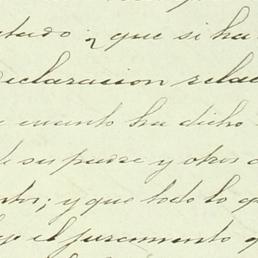 tado y que si ha
eclaracion rela
cuanto ha dicho
de su padre y otros
ntos; y que todo lo q
el juramento q